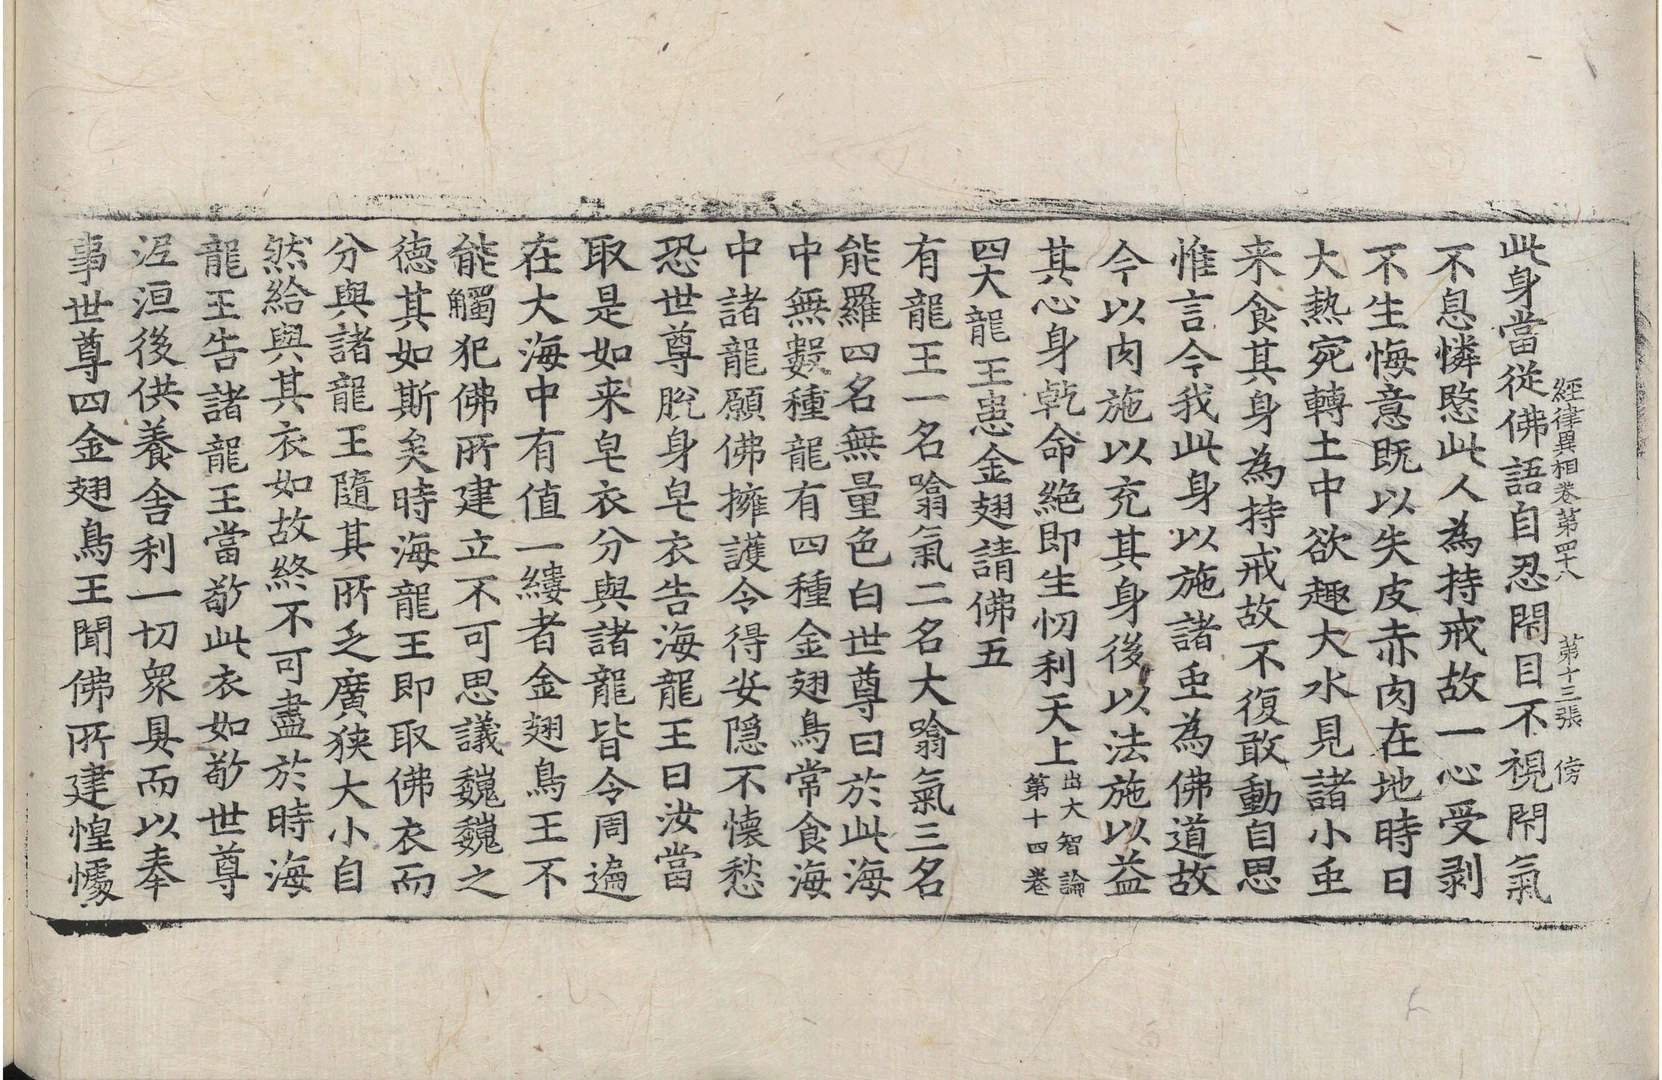 經律異相卷第四十八 第十三張 傍
此身當從佛語自忍閇目不視閇氣
不息憐愍此人為持戒故一心受剥
不生悔意既以失皮赤肉在地時日
大熱宛轉土中欲趣大水見諸小䖝
来食其身為持戒故不復敢動自思
惟言今我此身以施諸䖝為佛道故
今以肉施以充其身後以法施以益
其心身乹命絶即生忉利天上出大智論第十四卷
四大龍王患金翅請佛五
有龍王一名噏氣二名大噏氣三名
能羅四名無量色白世尊曰於此海
中無數種龍有四種金翅鳥常食海
中諸龍願佛擁護令得安隠不懷愁
恐世尊脫身皂衣告海龍王曰汝當
取是如来皂衣分與諸龍皆令周遍
在大海中有值一縷者金翅鳥王不
能觸犯佛所建立不可思議巍巍之
德其如斯矣時海龍王即取佛衣而
分與諸龍王隨其所乏廣狹大小自
然給與其衣如故終不可盡於時海
龍王告諸龍王當敬此衣如敬世尊
泥洹後供養舍利一切眾具而以奉
事世尊四金翅鳥王聞佛所建惶懅